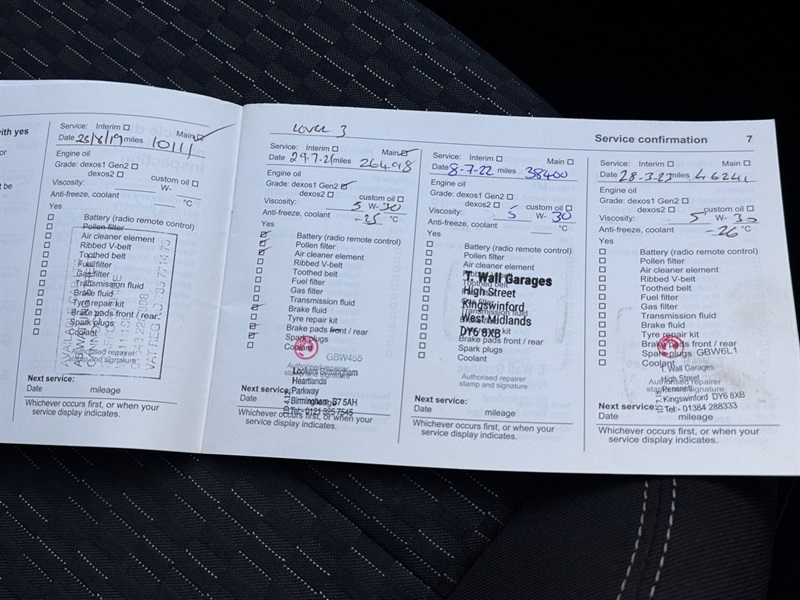 with yes
or
t be
Service: Interim Main
Date 28/8/19 miles 10111
Engine oil
Grade: dexos1 Gen2
dexos2 custom oil
Viscosity: W-
Anti-freeze, coolant °C
Yes
Battery (radio remote control)
Pollen filter
Air cleaner element
Ribbed V-belt
Toothed belt
Fuel filter
Gas filter
Transmission fluid
Brake fluid
Tyre repair kit
Brake pads front / rear
Spark plugs
Coolant
Authorised repairer
stamp and signature
Next service:
Date mileage
Whichever occurs first, or when your
service display indicates.
Level 3
Service: Interim Main
Date 29.7.21 miles 26498
Engine oil
Grade: dexos1 Gen2
dexos2 custom oil
Viscosity: 5 W- 30
Anti-freeze, coolant -25 °C
Yes
Battery (radio remote control)
Pollen filter
Air cleaner element
Ribbed V-belt
Toothed belt
Fuel filter
Gas filter
Transmission fluid
Brake fluid
Tyre repair kit
Brake pads front / rear
Spark plugs
Coolant
GBW455
Authorised repairer
stamp and signature
Lookers Birmingham
Heartlands
Parkway
Birmingham, B7 5AH
Next service:
Date mileage
Whichever occurs first, or when your
service display indicates.
Service confirmation 7
Service: Interim Main
Date 8-7-22 miles 38400
Engine oil
Grade: dexos1 Gen2
dexos2 custom oil
Viscosity: 5 W- 30
Anti-freeze, coolant °C
Yes
Battery (radio remote control)
Pollen filter
Air cleaner element
T. Wall Garages
High Street
Kingswinford
West Midlands
DY6 8XB
Brake pads front / rear
Spark plugs
Coolant
Authorised repairer
stamp and signature
Next service:
Date mileage
Whichever occurs first, or when your
service display indicates.
Service: Interim Main
Date 28-3-23 miles 46241
Engine oil
Grade: dexos1 Gen2
dexos2 custom oil
Viscosity: 5 W- 30
Anti-freeze, coolant -26 °C
Yes
Battery (radio remote control)
Pollen filter
Air cleaner element
Ribbed V-belt
Toothed belt
Fuel filter
Gas filter
Transmission fluid
Brake fluid
Tyre repair kit
Brake pads front / rear
Spark plugs GBW6L1
Coolant
T. Wall Garages
High Street
Authorised repairer
Pensnett
stamp and signature
Kingswinford DY6 8XB
Tel:- 01384 288333
Next service:
Date mileage
Whichever occurs first, or when your
service display indicates.